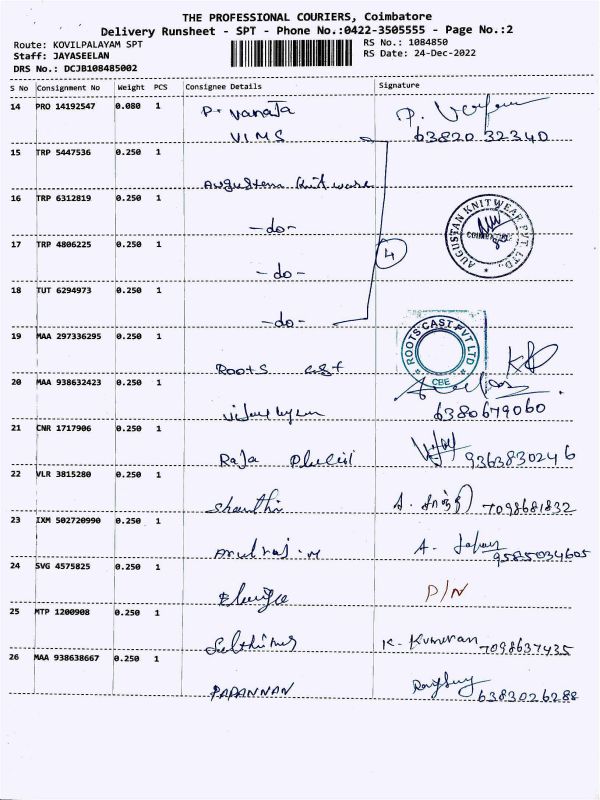 THE PROFESSIONAL COURIERS, Coimbatore
Delivery Runsheet - SPT - Phone No.:0422-3505555 - Page No.:2
Route: KOVILPALAYAM SPT
Staff: JAYASEELAN
DRS No.: DCJB108485002
RS No.: 1084850
RS Date: 24-Dec-2022
S No Consignment No Weight PCS Consignee Details Signature
14 PRO 14192547 0.080 1 P. Vanaja
VIMS 63820 32340
15 TRP 5447536 0.250 1
Augustern Knit ware
16 TRP 6312819 0.250 1
-do-
AUGUSTAN KNITWEAR PVT. LTD.
17 TRP 4806225 0.250 1
-do-
4
18 TUT 6294973 0.250 1
-do-
19 MAA 297336295 0.250 1
Roots
ROOTS CAST PVT LTD
CBE
20 MAA 938632423 0.250 1
6380679060
21 CNR 1717906 0.250 1
Raja 9363830246
22 VLR 3815280 0.250 1
Shanthi A. சாந்தி 7098681832
23 IXM 502720990 0.250 1
Arulraj.M A. 9585034605
24 SVG 4575825 0.250 1
P/N
25 MTP 1200908 0.250 1
K. Kumaran 7098637435
26 MAA 938638667 0.250 1
PAPANNAN 6383026288